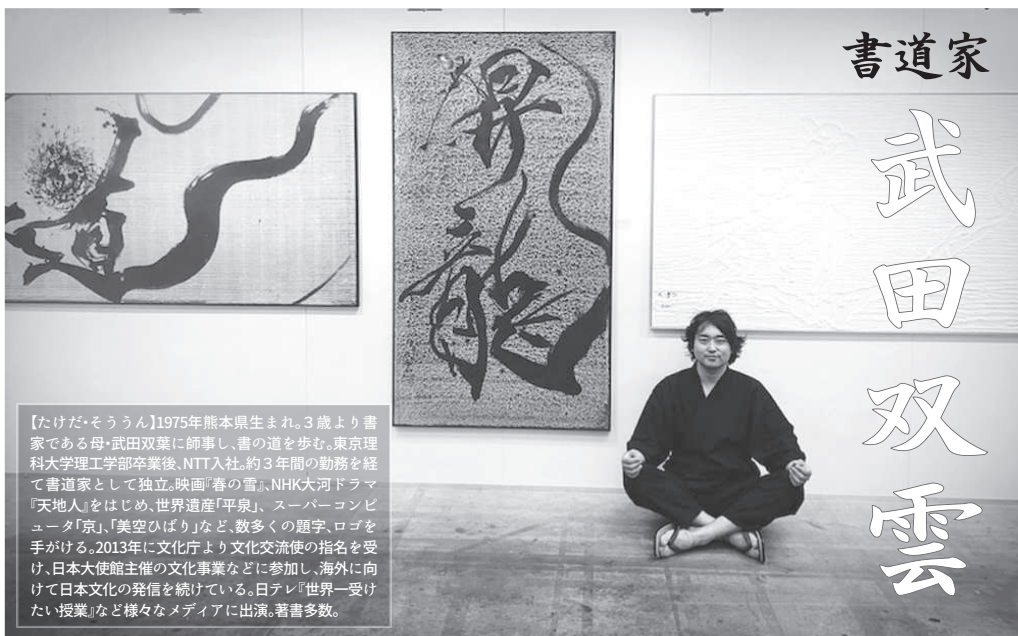 書道家
武田双雲
昇龍
道
【たけだ・そううん】1975年熊本県生まれ。3歳より書
家である母・武田双葉に師事し、書の道を歩む。東京理
科大学理工学部卒業後、NTT入社。約3年間の勤務を経
て書道家として独立。映画『春の雪』、NHK大河ドラマ
『天地人』をはじめ、世界遺産「平泉」、スーパーコンピ
ュータ「京」、「美空ひばり」など、数多くの題字、ロゴを
手がける。2013年に文化庁より文化交流使の指名を受
け、日本大使館主催の文化事業などに参加し、海外に向
けて日本文化の発信を続けている。日テレ『世界一受け
たい授業』など様々なメディアに出演。著書多数。